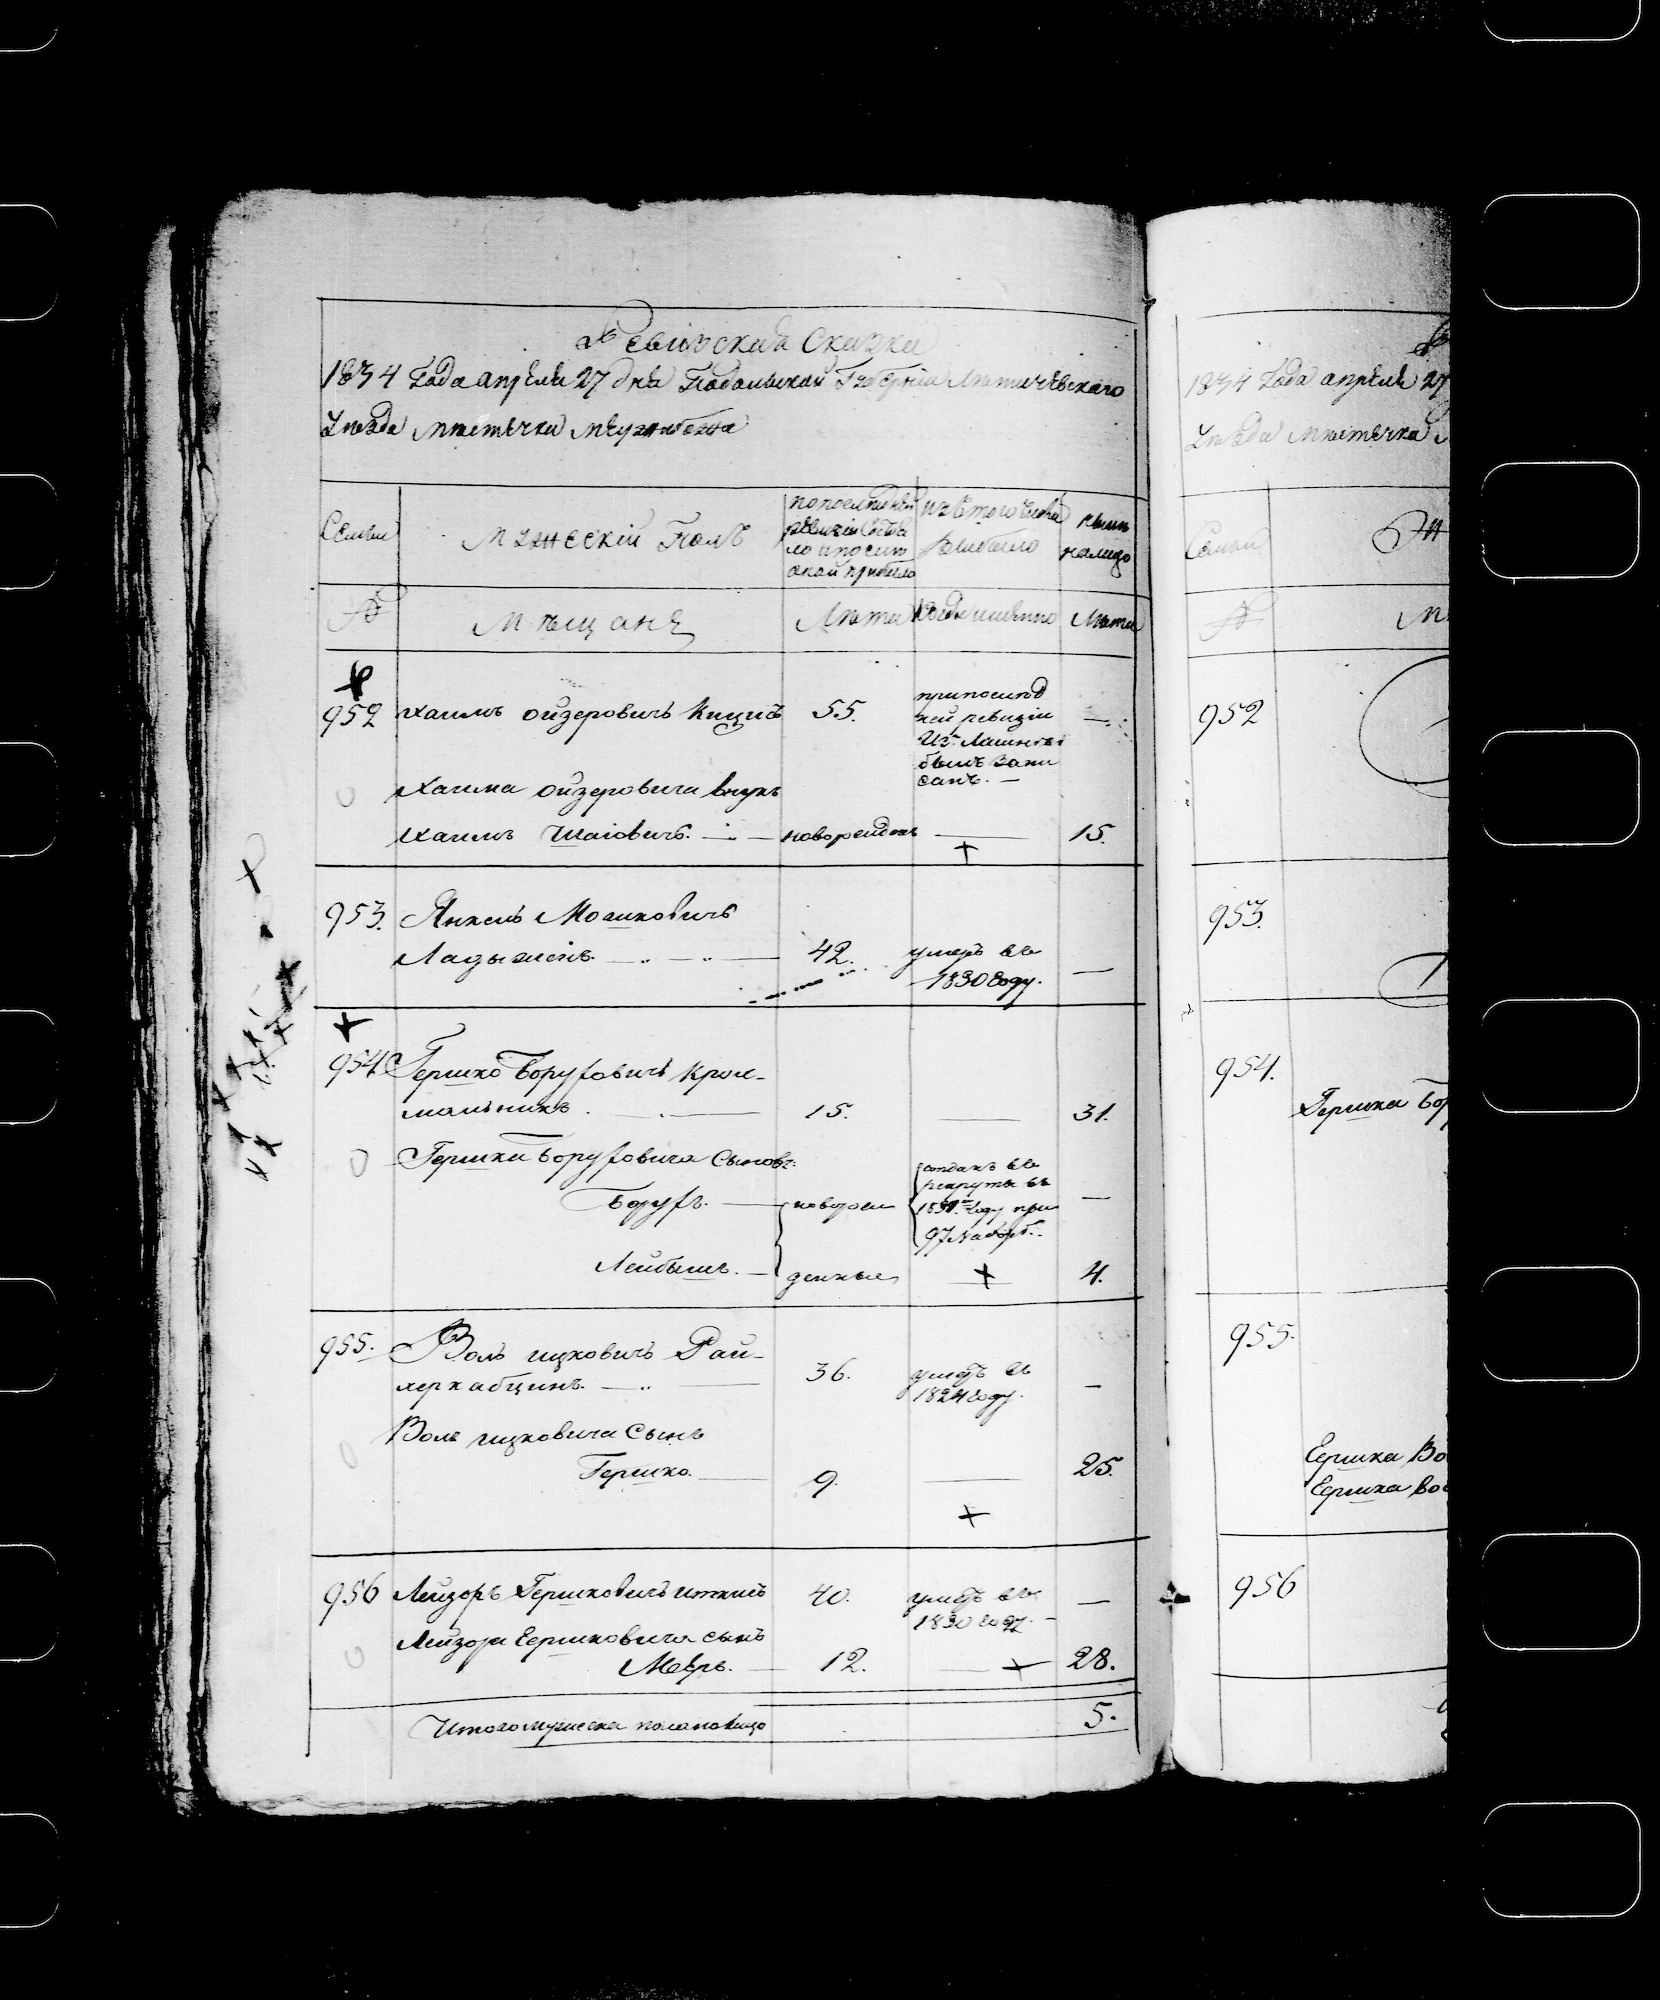 Ревизская Сказка
1834 Года апреля 27 дня Подольской Губернии Летичевского
Уезда местечка Меужибожа
Семьи
Мужеский Полъ
по последней
ревизии состоя
ло и после
оной прибыло
Изъ того числа
Выбыло
ныне
налицо
№
Мещане
Лета
Когда именно
Лета
952
Хаимъ Ойзеровичъ Кицисъ
55.
при послед
ней ревизии
былъ запи
санъ. —
—
Хаима Ойзеровича внукъ
Хаимъ Шаіовичъ. — новорожденъ — 15.
953.
Янкель Мошковичъ
Ладыженъ. — 42. умеръ въ —
1830 году.
954
Гершко Боруховичъ Крас-
мальникъ. — 15. — 31.
Гершки Боруховича Сыновья:
Борухъ. — новорож
отданъ въ
рекруты въ
1831.м году при
97 наборе.
—
Лейбышъ. — денные 4.
955.
Воль Ицковичъ Рай-
херкабцинъ. — 36. умеръ въ
1824 году. —
Воля Ицковича Сынъ
Гершко. — 9. — 25.
956
Лейзоръ Гершковичъ Иткисъ 40. умеръ въ —
1830 году. —
Лейзора Гершковича сынъ
Мееръ. — 12. — 28.
Итого мужеска пола налицо 5.
1834 Года апреля 27
Уезда местечка
Семьи
Ж
№
М
952
953.
954.
Гершка Бор
955.
Гершка Во
Гершка Во
956